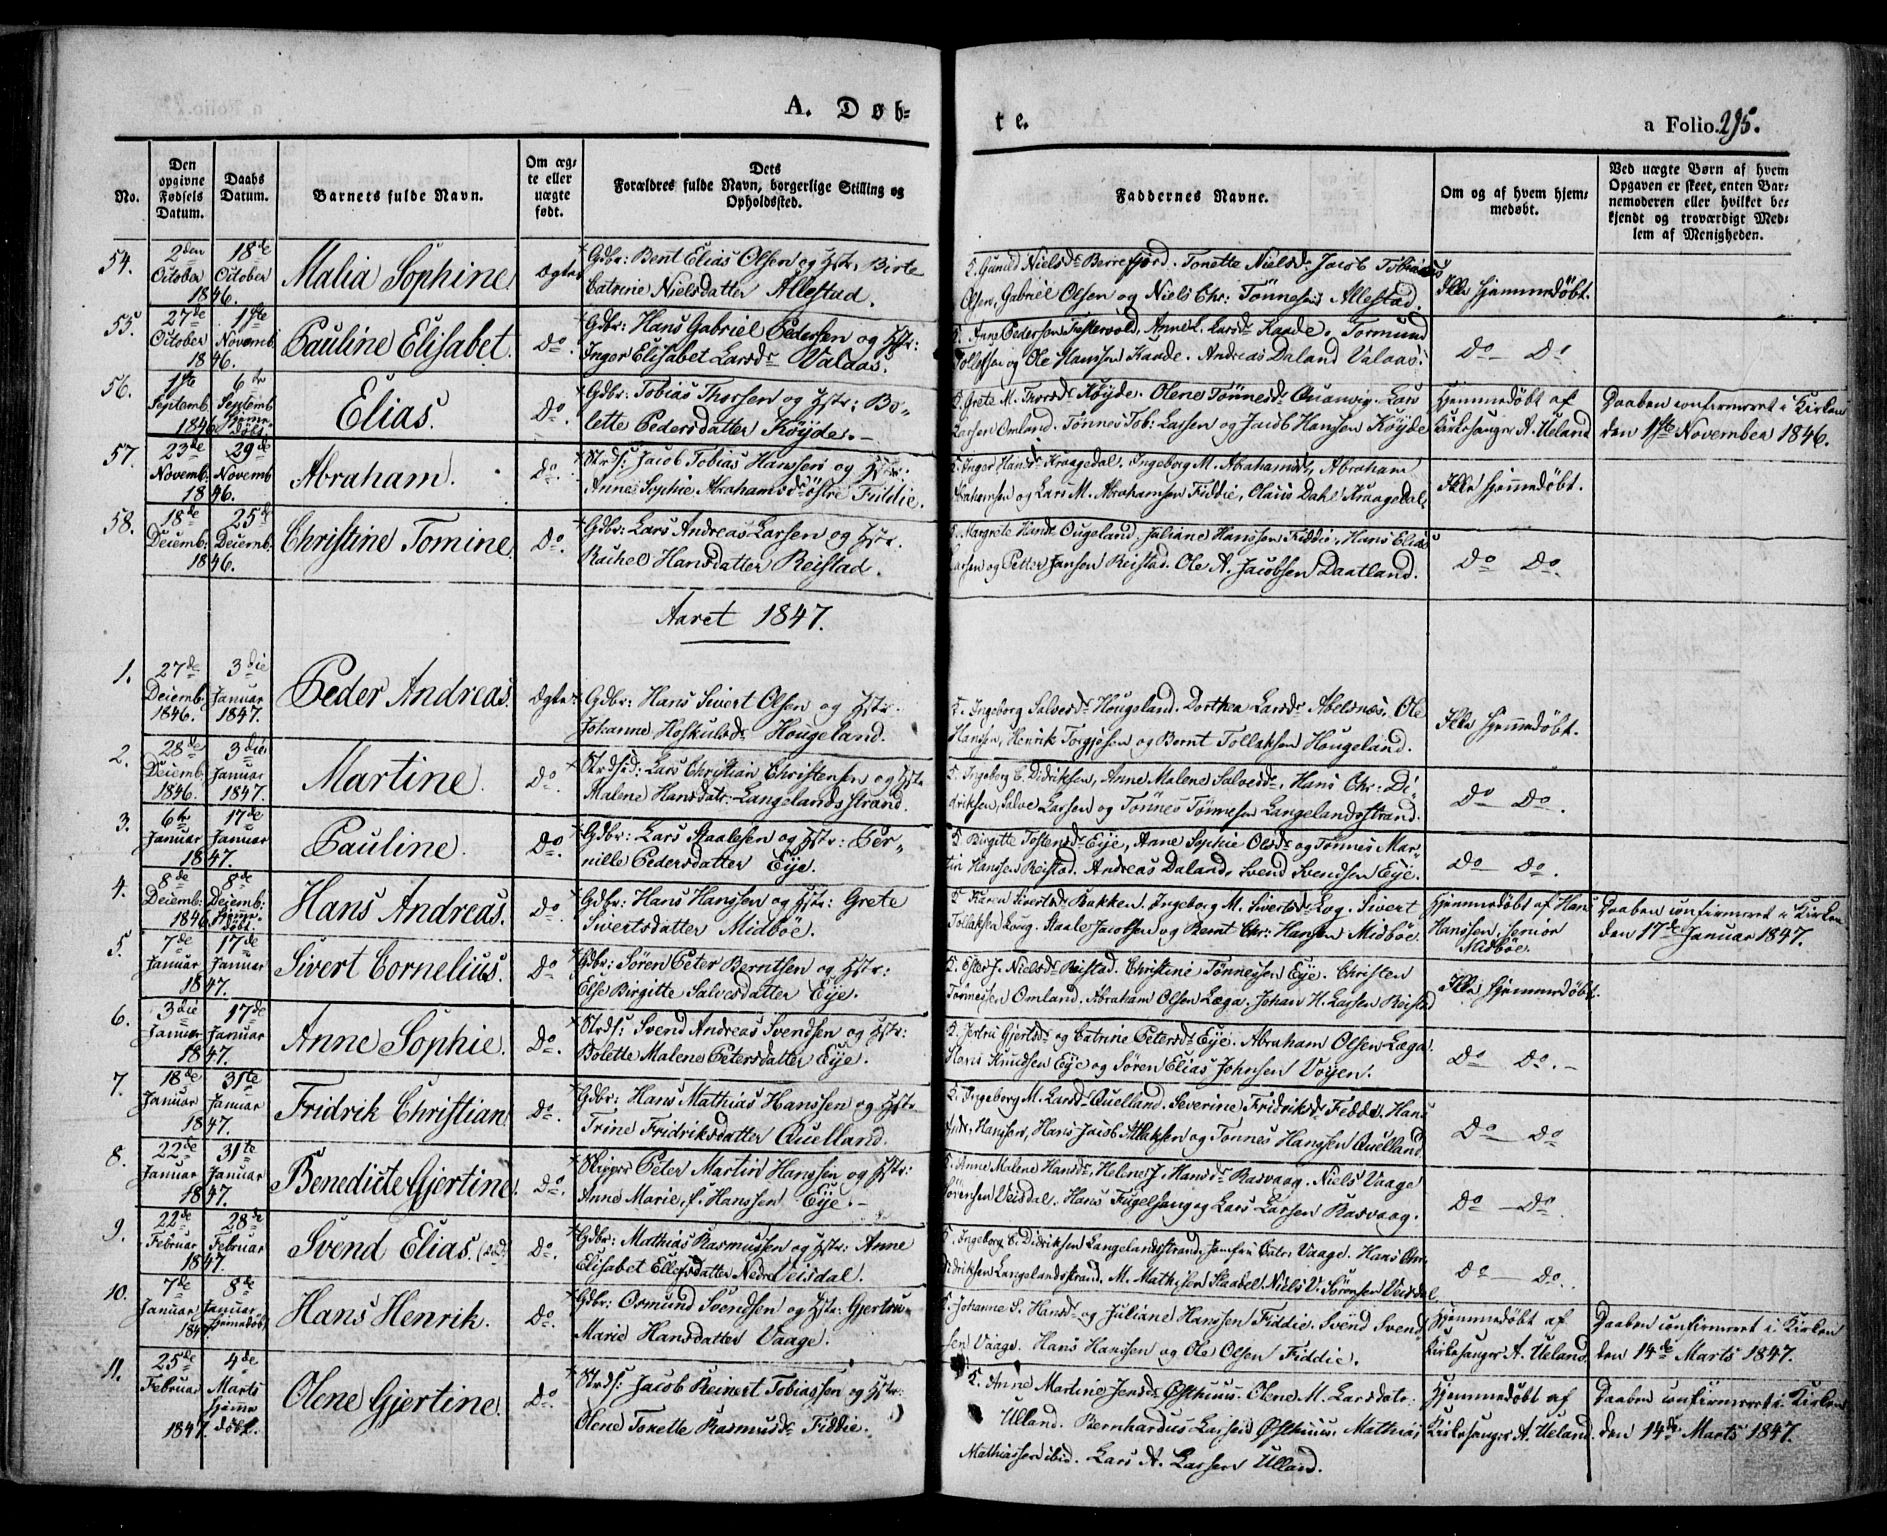 A. Døb-
te.
a Folio 295.
No.
Den opgivne Fødsels Datum.
Daabs Datum.
Barnets fulde Navn.
Om ægte eller uægte født.
Dets Forældres fulde Navn, borgerlige Stilling og Opholdssted.
Faddernes Navne.
Om og af hvem hjemmedøbt.
Ved uægte Børn af hvem Opgaven er skeet, enten Barnemoderen eller hvilket bekjendt og troværdigt Medlem af Menigheden.
54. 2den October 18de October 1846. Malia Sophine Ægte
Gdbr: Bent Elias Olsen og Hstr. Birte
Catrine Nielsdatter Allestad.
F. Gunild Nielsdr Berrefjord. Tonette Nielsdr Jacob Tobias
Olsen, Gabriel Olsen og Niels Chr: Tønnesen Allestad.
Ikke hjemmedøbt.
55. 27de October 1ste Novemb 1846. Pauline Elisabet. Do.
Gdbr: Hans Gabriel Pedersen og Hstr:
Inger Elisabet Larsdr Valaas.
Tollefsen og Ole Hanssen Kaade. Andreas Daland Valaas.
Do Do
56. 1ste Septemb. 6te Septemb Hjemmedøbt 1846 Elias. Do.
Gdbr: Tobias Thorsen og Hstr: Bo-
lette Pedersdatter Køyde.
F. Grete M. Thorsdr Køyde. Olene Tønnesdr Lars
Larsen Omland. Tønnes Tob: Larsen og Jacob Hansen Køyde
Hjemmedøbt af
Kirkesanger A. Ueland
Daaben confirmeret i Kirken
den 1ste November 1846.
57. 23de Novemb: 29de Novemb 1846. Abraham. Do.
Strds: Jacob Tobias Hanssen og Hstr.
Anne Sophie Abrahamsdr østre Fiddie.
F. Inger Hansdr Kraagedal. Ingeborg M. Abrahamsdr, Abraham
Abrahamsen og Lars M. Abrahamsen Fiddie, Olaus Dahl Kraagedal.
Ikke hjemmedøbt.
58. 18de Decemb: 25de Decemb: 1846. Christine Tomine Do.
Gdbr: Lars Andreas Larsen og Hstr.
Rachel Hansdatter Reistad.
F. Margrete Hansdr Ougeland. Juliane Hanssen Fiddie, Hans Elias
Larsen og Petter Jansen Reistad. Ole A. Jacobsen Daatland.
Do Do
Aaret 1847.
1. 27de Decemb. 1846. 3die Januar 1847. Peder Andreas Ægte
Gdbr: Hans Sivert Olsen og Hstr.
Johanne Hoskuldsdr Hougeland.
F. Ingeborg Salvesdr Hougeland. Dorthea Larsdr Abelsnæs. Ole
Hansen, Henrik Torgjøsen og Bernt Tollaksen Hougeland.
Ikke hjemmedøbt.
2. 28de Decemb. 1846. 3die Januar 1847. Martine Do
Strdsid: Lars Christian Christensen og Hstr
Malene Hansdatr: Langelandsstrand.
F. Ingeborg C. Didriksen, Anne Malene Salvesdr, Hans Chr: Di-
driksen, Salve Larsen og Tønnes Tønnesen Langelandsstrand.
Do Do.
3. 6te Januar 17de Januar 1847. Pauline Do.
Gdbr: Lars Staalesen og Hstr: Per-
nille Pedersdatter Eye.
F. Birgitte Tostensdr Eye, Anne Sophie Olsdr og Tønnes Mar-
tin Hansen Reistad. Andreas Daland, Svend Svendsen Eye.
Do Do.
4. 8de Decemb: 8de Decemb: Hjemmedøbt. 1846 Hans Andreas. Do
Gdbr: Hans Hanssen og Hstr: Grete
Sivertsdatter Midbøe.
F. Karen Sivertsdr Bakken, Ingeborg M. Sivertsdr Log. Sivert
Tollaksen Loug. Staale Jacobsen og Bernt Chr: Hansen Midbøe
Hjemmedøbt af Hans
Hanssen, senior
Midbøe.
Daaben confirmeret i Kirken
den 17de Januar 1847.
5. 7de Januar 17de Januar 1847. Sivert Cornelius. Do
Gdbr: Søren Peter Berntsen og Hstr:
Else Birgitte Salvesdatter Eye.
F. Ester J. Nielsdr Reistad. Christine Tønnesen Eye. Christen
Tønnesen Omland. Abraham Olsen Læga. Johan H. Larsen Reistad
Ikke hjemmedøbt.
6. 3die Januar 17de Januar 1847. Anne Sophie. Do.
Strds: Svend Andreas Svendsen og Hstr:
Bolette Malene Petersdatter Eye.
Gjertsdr og Catrine Petersdr Eye. Abraham Olsen Læga.
Hans Knudsen Eye og Søren Elias Johnsen Voyen.
Do Do.
7. 18de Januar 31te Januar 1847. Fridrik Christian Do.
Gdbr: Hans Mathias Hanssen og Hstr
Trine Fridriksdatter Quelland.
F. Ingeborg M. Larsdr Quelland. Severine Fridriksdr Fedde. Hans
Andr. Hanssen, Hans Jacob Atlaksen og Tønnes Hanssen Quelland
Do Do
8. 22de Januar 31te Januar 1847. Benedicte Gjertine. Do.
Skipper Peter Martin Hanssen og Hstr:
Anne Marie, f. Hanssen Eye.
F. Anne Malene Hansdr, Helene J. Hansdr Rasvaag. Niels Vaage
Sørensen Veisdal. Hans Fugelsang og Lars Larsen Rasvaag.
Do Do.
9. 22de Februar 28de Februar 1847. Svend Elias. Do.
Gdbr: Mathias Rasmussen og Hstr: Anne
Elisabet Ellefsdatter Nedre Veisdal.
F. Ingeborg C. Didriksen Langelandsstrand, Vaage. Hans Chr.
Didriksen Langelandsstrand. M. Mathisen Niels V. Sørensen Veisdal
Do Do.
10. 7de Januar 8de Januar Hjemmedøbt 1847. Hans Henrik. Do.
Gdbr: Osmund Svendsen og Hstr: Gjertru-
Marie Hansdatter Vaage.
F. Johanne S. Hansdr og Juliane Hanssen Fiddie. Svend Svend-
sen Vaage. Hans Hanssen og Ole Olsen Fiddie.
Hjemmedøbt af
Kirkesanger A. Ueland
Daaben confirmeret i Kirken
den 14de Marts 1847.
11. 25de Februar 4de Marts Hjemmedøbt. 1847. Olene Gjertine. Do
Strds: Jacob Reinert Tobiassen og Hstr:
Olene Tonette Rasmusdr Fiddie.
F. Anne Martine Jensdr Østhuus. Olene M. Larsdatr:
Ulland. Bernhardus Larsen Østhuus. Mathias
Mathiassen ibid. Lars A. Larsen Ulland.
Hjemmedøbt af
Kirkesanger A. Ueland.
Daaben confirmeret i Kirken
den 14de Marts 1847.